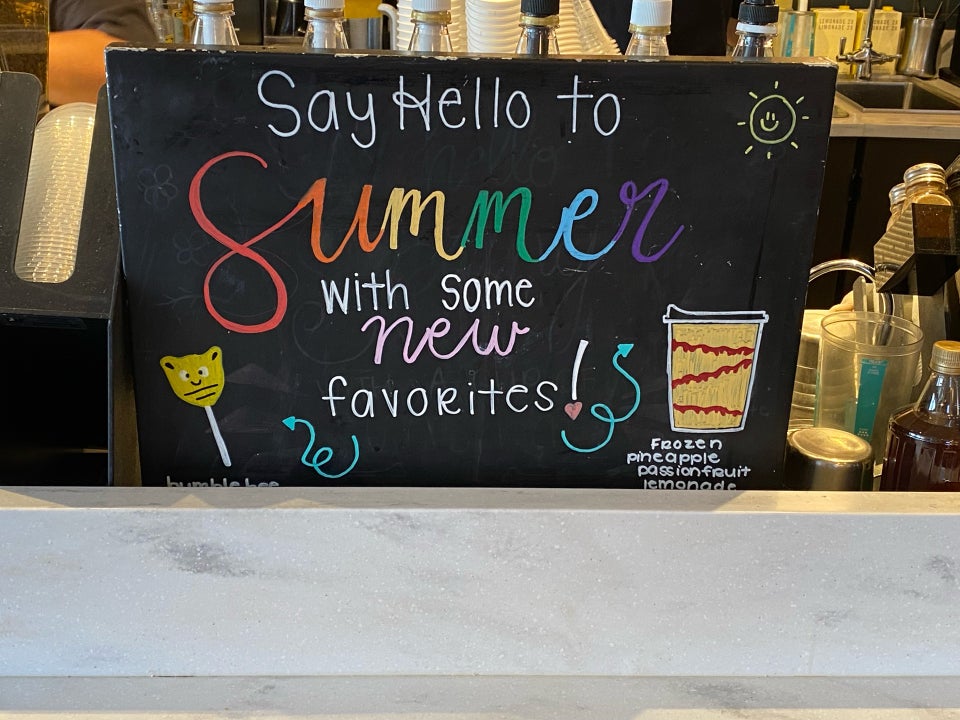 Say Hello to
Summer
with some
new
favorites!
bumble bee
Frozen
pineapple
passionfruit
lemonade